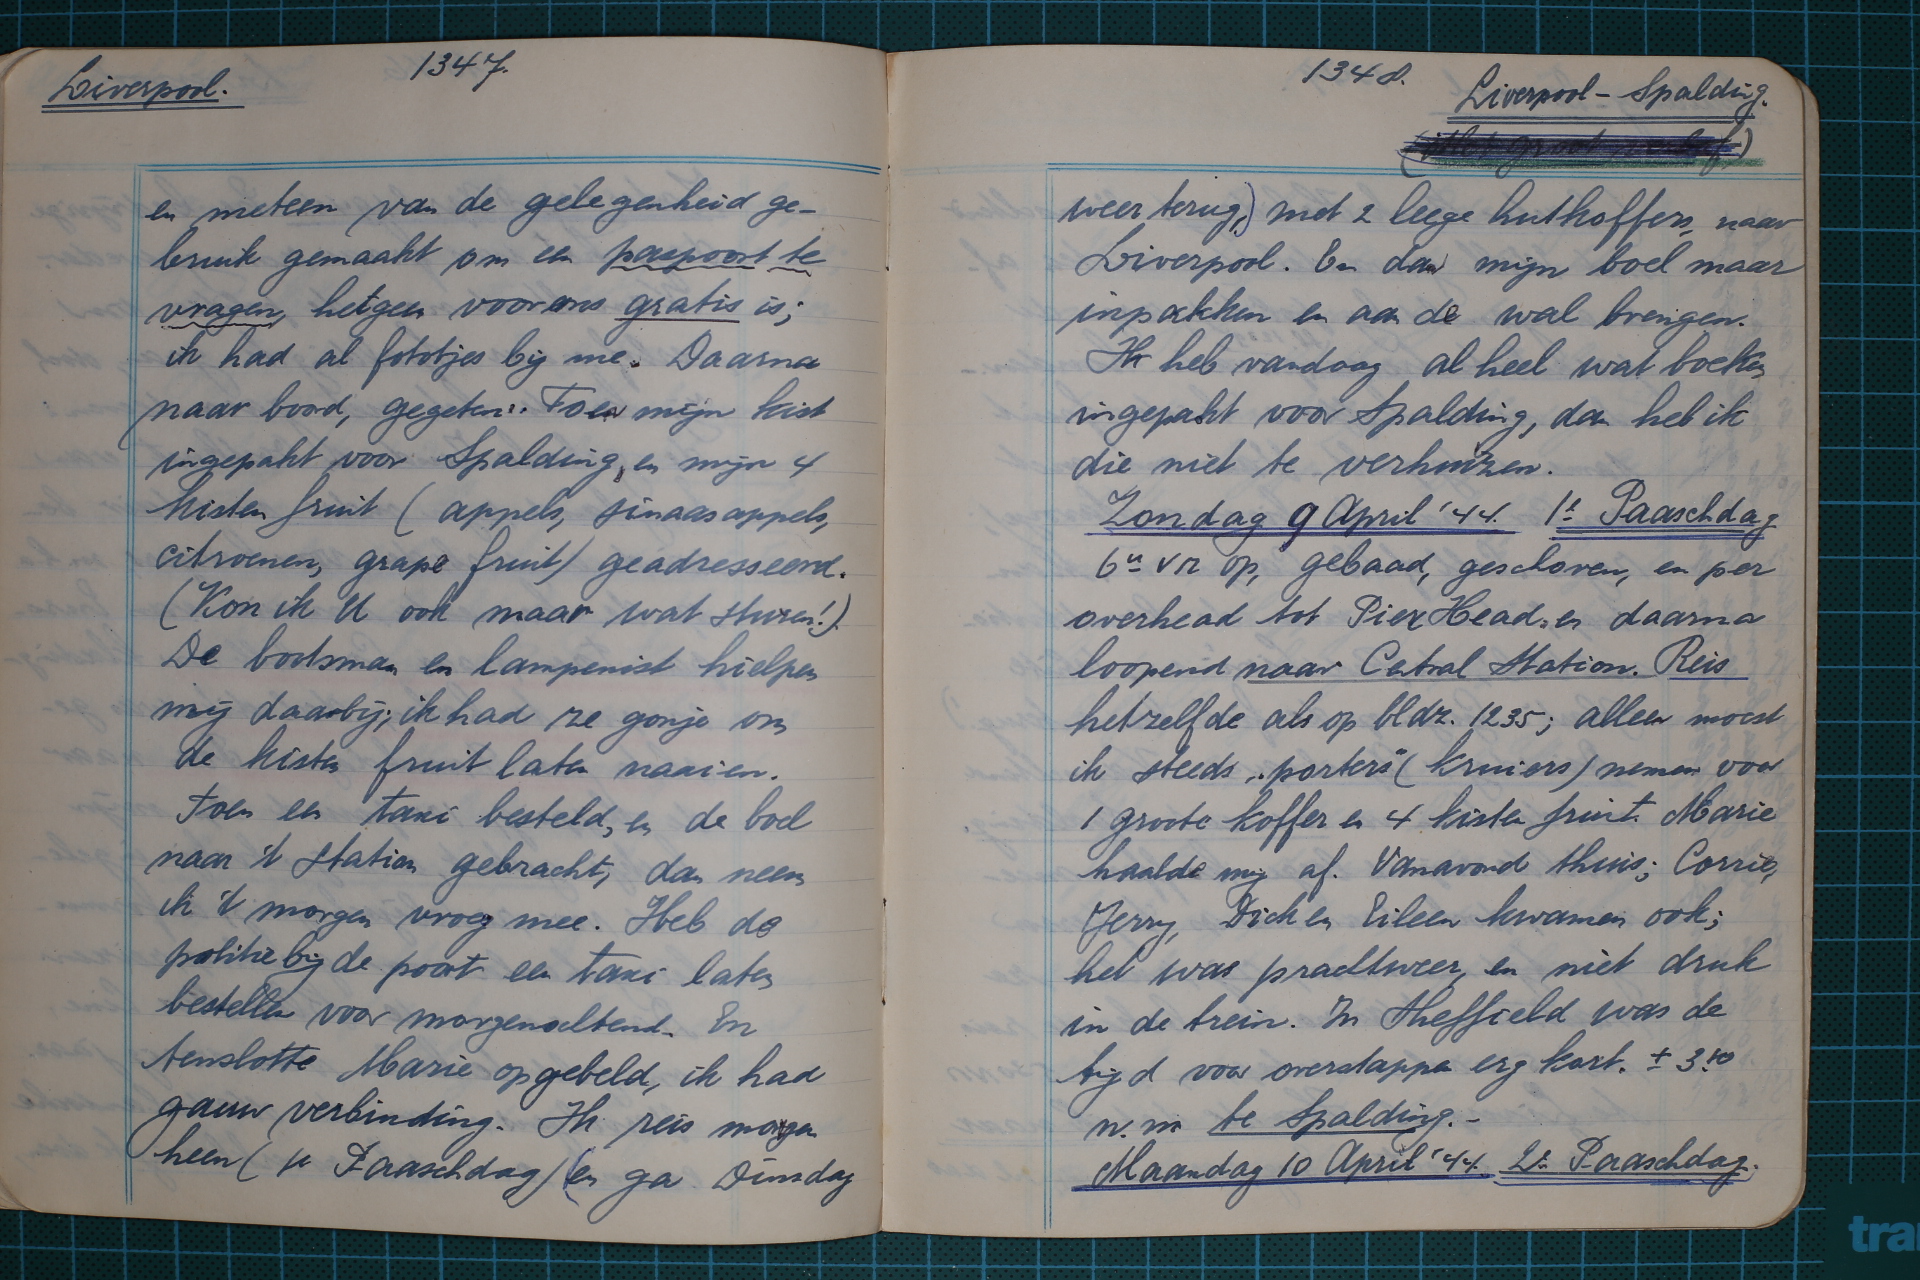 Liverpool.
1347.
en meteen van de gelegenheid ge-
bruik gemaakt om een paspoort te
vragen, hetgeen voor ons gratis is;
ik had al fototjes bij me. Daarna
naar boord, gegeten. Toen mijn kist
ingepakt voor Spalding, en mijn 4
kisten fruit (appels, sinaasappels,
citroenen, grape fruit) geadresseerd.
(Kon ik U ook maar wat sturen!).
De bootsman en lampenist hielpen
mij daarbij; ik had ze gonje om
de kisten fruit laten naaien.
Toen een taxi besteld, en de boel
naar 't station gebracht, dan neem
ik 't morgen vroeg mee. Heb de
politie bij de poort een taxi laten
bestellen voor morgenochtend. En
tenslotte Marie opgebeld, ik had
gauw verbinding. Ik reis morgen
heen (1e Paaschdag) (en ga Dinsdag
1348.
Liverpool - Spalding.
weer terug,) met 2 leege hutkoffers, naar
Liverpool. En dan mijn boel maar
inpakken en aan de wal brengen.
Ik heb vandaag al heel wat boeken
ingepakt voor Spalding, dan heb ik
die niet te verhuizen.
Zondag 9 April '44. 1e Paaschdag
6u vm op, gebaad, geschoren, en per
overhead tot Pier Head, en daarna
loopend naar Cetral Station. Reis
hetzelfde als op bldz. 1235; alleen moest
ik steeds „porters" (kruiers) nemen voor
1 groote koffer en 4 kisten fruit. Marie
haalde mij af. Vanavond thuis; Corrie,
Jerry, Dick en Eileen kwamen ook;
het was prachtweer, en niet druk
in de trein. In Sheffield was de
tijd voor overstappen erg kort. ± 3.40
n.m te Spalding.-
Maandag 10 April '44. 2e Paaschdag.
tra